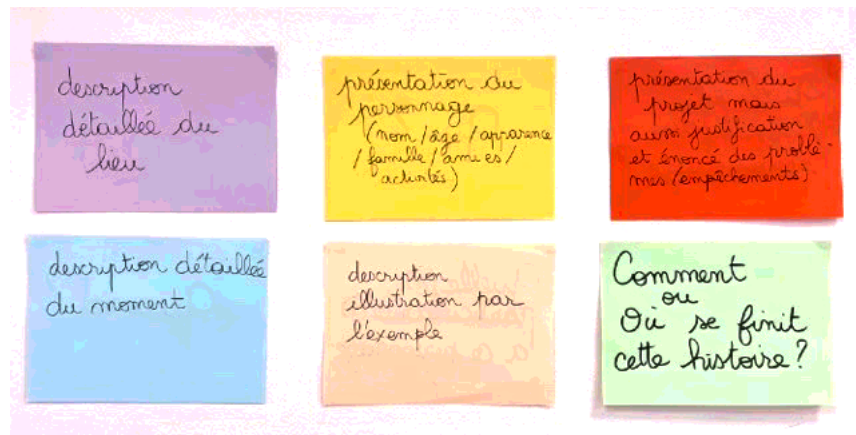 description
détaillée du
lieu
présentation du
personnage
(nom / âge / apparence
/ famille / ami es /
activités)
présentation du
projet mais
aussi justification
et énoncé des problè-
mes (empêchements)
description détaillée
du moment
description
illustration par
l'exemple
Comment
ou
Où se finit
cette histoire ?